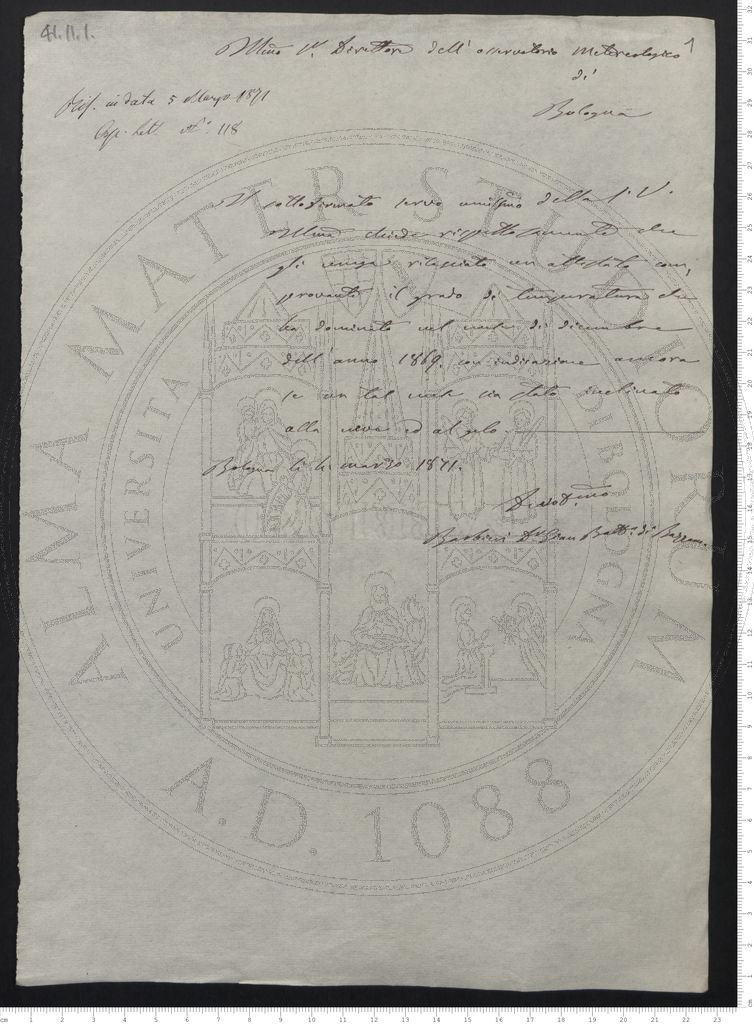 41.11.1.
1
Illmo Sr. Direttore dell'osservatorio Metereologico
di
Bologna
Risp. in data 5 Marzo 1871
Cop. Lett. No. 118
Il sottofirmato servo umilissimo della S. V.
Illma chiede rispettosamente che
gli venga rilasciato un attestato com,
provante il grado di temperatura che
ha dominato nel mese di dicembre
dell'anno 1869, con indicazione ancora
se un tal mese sia stato inclinato
alla neve ed al gelo.
Bologna li 4 marzo 1871.
Devotmo
Dr. Gian Batta. di
ALMA MATER STUDIORUM
UNIVERSITÀ DI BOLOGNA
A.D. 1088